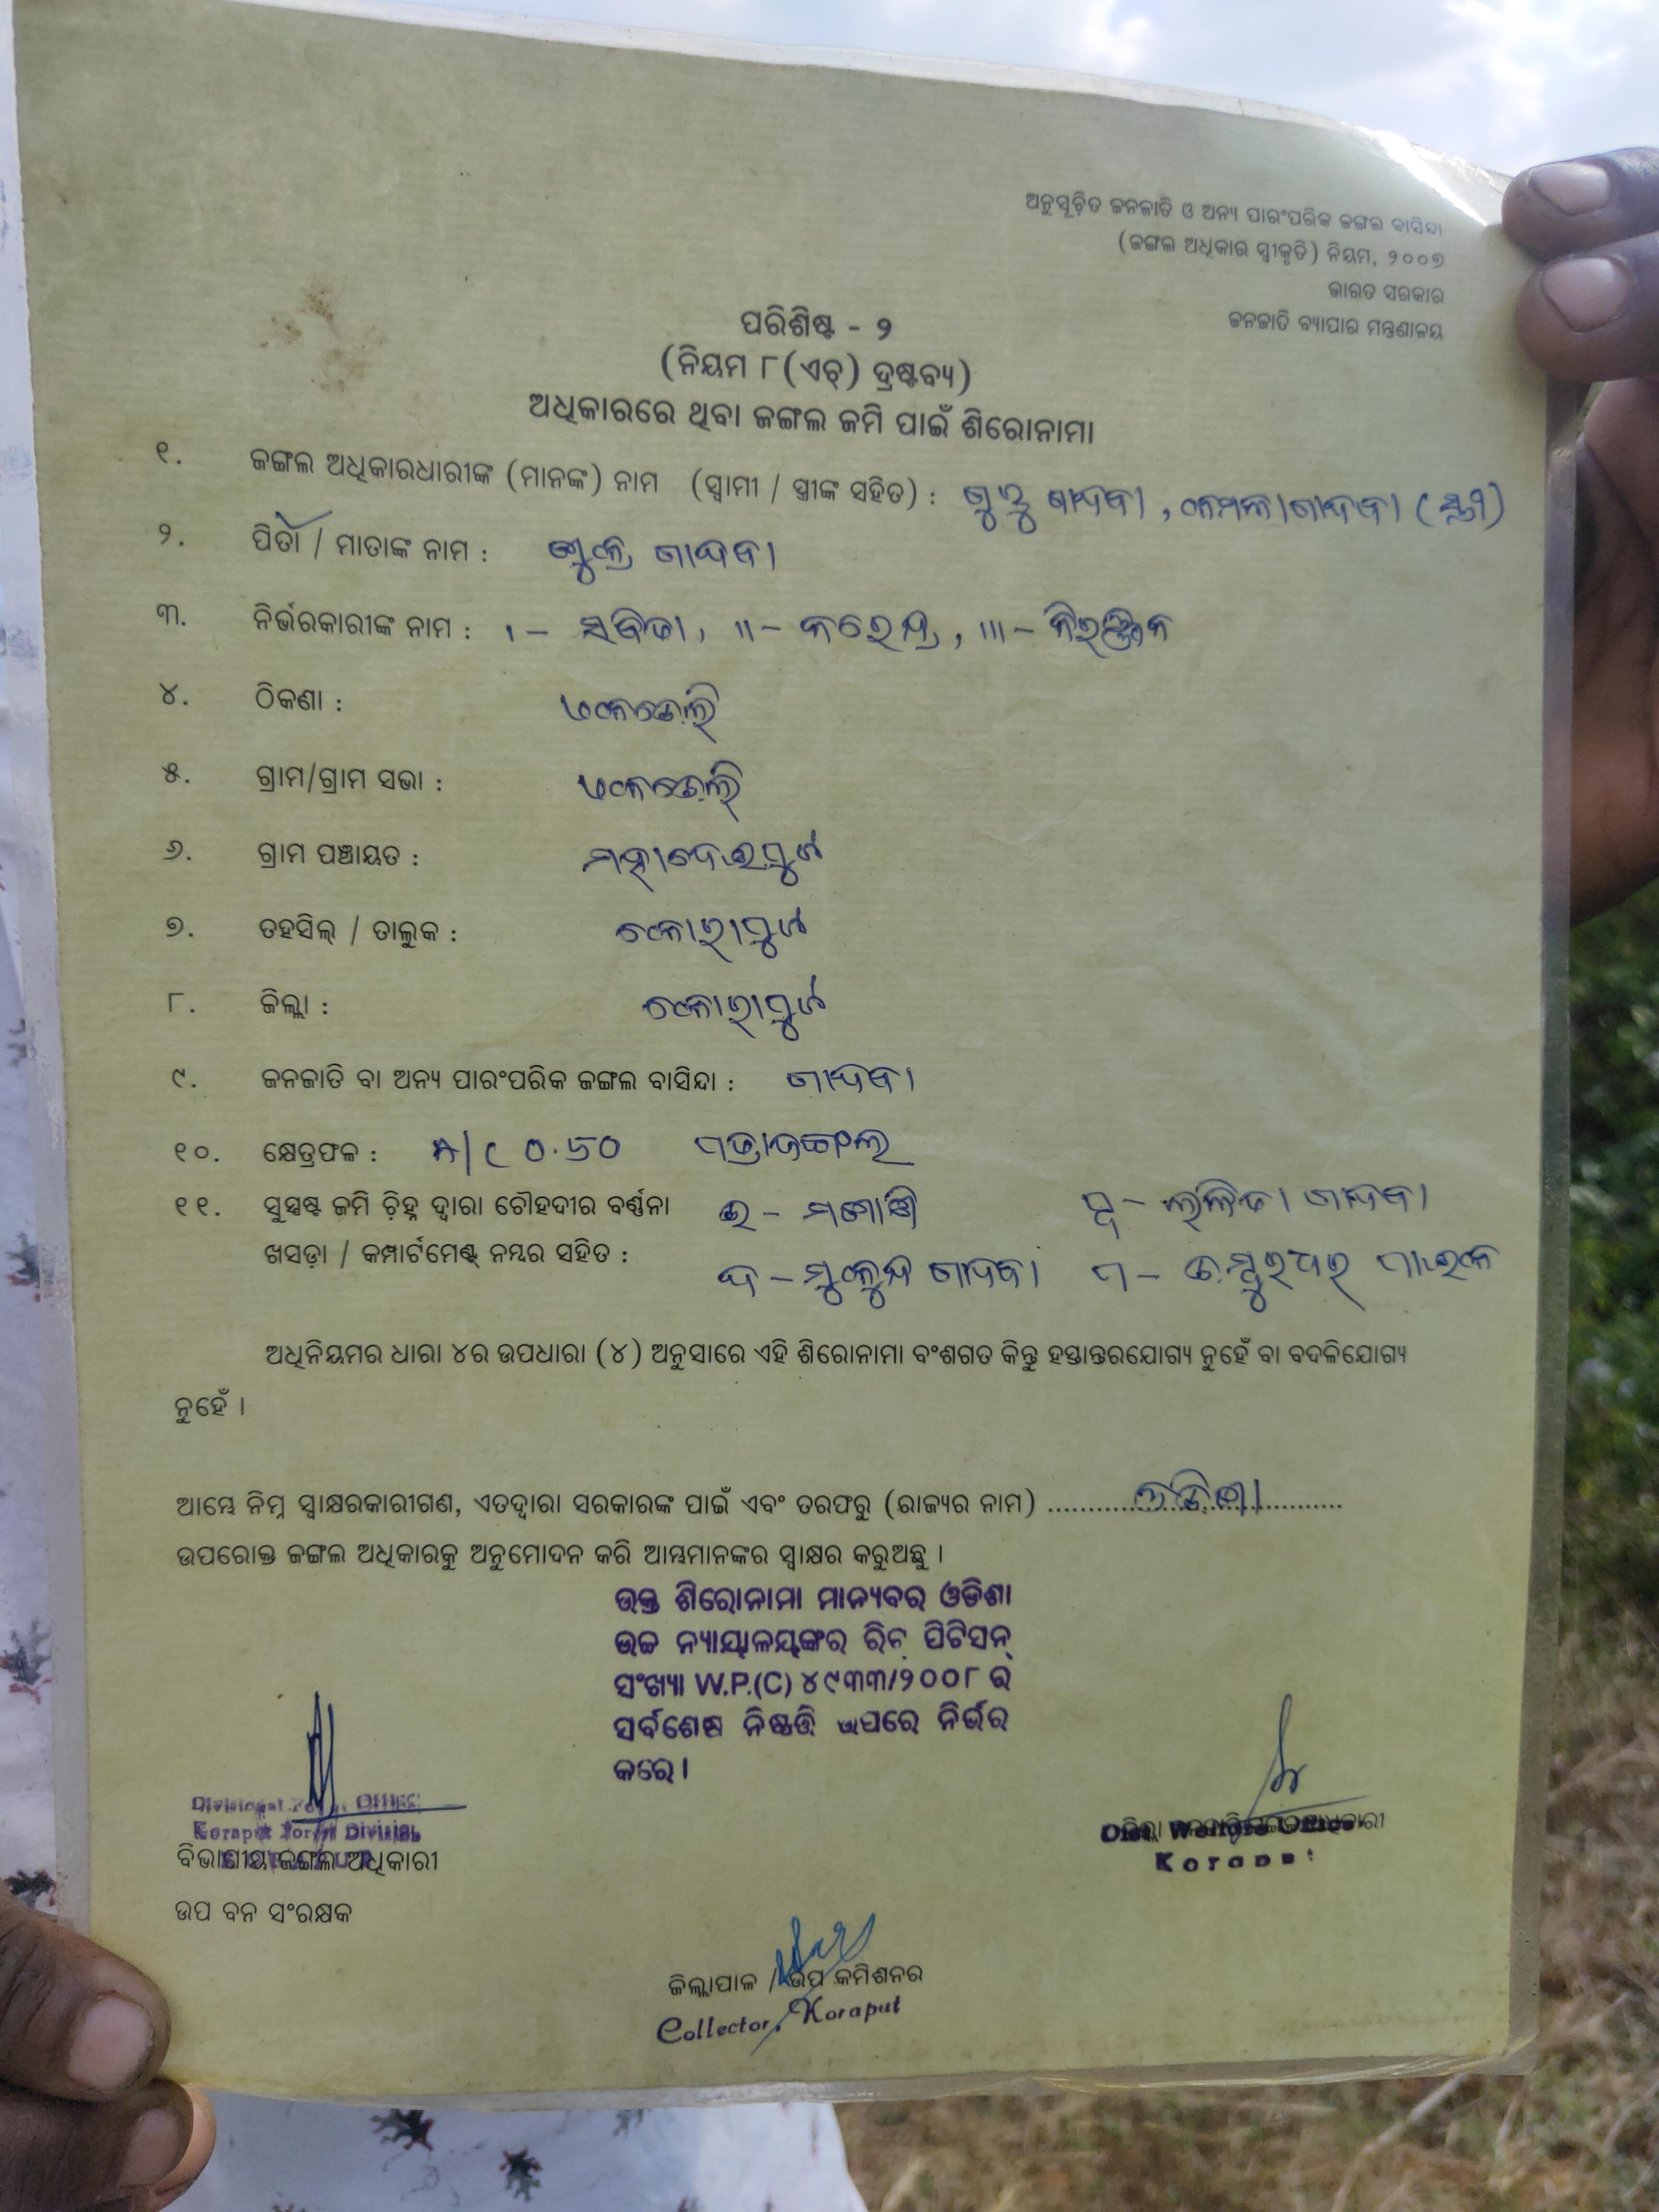 ଅନୁସୂଚିତ ଜନଜାତି ଓ ଅନ୍ୟ ପାରଂପରିକ ଜଙ୍ଗଲ ବାସିନ୍ଦା
(ଜଙ୍ଗଲ ଅଧିକାର ସ୍ୱୀକୃତି) ନିୟମ, ୨୦୦୭
ଭାରତ ସରକାର
ଜନଜାତି ବ୍ୟାପାର ମନ୍ତ୍ରଣାଳୟ
ପରିଶିଷ୍ଟ - ୨
(ନିୟମ ୮(ଏଚ୍) ଦ୍ରଷ୍ଟବ୍ୟ)
ଅଧିକାରରେ ଥିବା ଜଙ୍ଗଲ ଜମି ପାଇଁ ଶିରୋନାମା
୧. ଜଙ୍ଗଲ ଅଧିକାରଧାରୀଙ୍କ (ମାନଙ୍କ) ନାମ (ସ୍ୱାମୀ / ସ୍ତ୍ରୀଙ୍କ ସହିତ) : ଗାଦବା , କମଳା ଗାଦବା (ସ୍ତ୍ରୀ)
୨. ପିତା / ମାତାଙ୍କ ନାମ : ଶୁକ୍ର ଗାଦବା
୩. ନିର୍ଭରକାରୀଙ୍କ ନାମ : ।- ସବିତା, ॥-
୪. ଠିକଣା :
୫. ଗ୍ରାମ/ଗ୍ରାମ ସଭା :
୬. ଗ୍ରାମ ପଞ୍ଚାୟତ : ମହାଦେଇପୁଟ
୭. ତହସିଲ୍ / ତାଲୁକ : କୋରାପୁଟ
୮. ଜିଲ୍ଲା : କୋରାପୁଟ
୯. ଜନଜାତି ବା ଅନ୍ୟ ପାରଂପରିକ ଜଙ୍ଗଲ ବାସିନ୍ଦା : ଗାଦବା
୧୦. କ୍ଷେତ୍ରଫଳ : A/C ୦.୬୦ ପତ୍ରାଜଙ୍ଗଲ
୧୧. ସୁସ୍ପଷ୍ଟ ଜମି ଚିହ୍ନ ଦ୍ୱାରା ଚୌହଦୀର ବର୍ଣ୍ଣନା ଉ - ମଶାଣି ପୂ - ଲଳିତା ଗାଦବା
ଖସଡ଼ା / କମ୍ପାର୍ଟମେଣ୍ଟ ନମ୍ବର ସହିତ : ଦ - ମୁକୁନ୍ଦ ଗାଦବା ପ -
ଅଧିନିୟମର ଧାରା ୪ର ଉପଧାରା (୪) ଅନୁସାରେ ଏହି ଶିରୋନାମା ବଂଶଗତ କିନ୍ତୁ ହସ୍ତାନ୍ତରଯୋଗ୍ୟ ନୁହେଁ ବା ବଦଳିଯୋଗ୍ୟ
ନୁହେଁ ।
ଆମ୍ଭେ ନିମ୍ନ ସ୍ୱାକ୍ଷରକାରୀଗଣ, ଏତଦ୍ୱାରା ସରକାରଙ୍କ ପାଇଁ ଏବଂ ତରଫରୁ (ରାଜ୍ୟର ନାମ) ........ ଓଡ଼ିଶା ........
ଉପରୋକ୍ତ ଜଙ୍ଗଲ ଅଧିକାରକୁ ଅନୁମୋଦନ କରି ଆମ୍ଭମାନଙ୍କର ସ୍ୱାକ୍ଷର କରୁଅଛୁ ।
ଉକ୍ତ ଶିରୋନାମା ମାନ୍ୟବର ଓଡିଶା
ଉଚ୍ଚ ନ୍ୟାୟାଳୟଙ୍କର ରିଟ୍ ପିଟିସନ୍
ସଂଖ୍ୟା W.P.(C) ୪୯୩୩/୨୦୦୮ ର
ସର୍ବଶେଷ ନିଷ୍ପତ୍ତି ଉପରେ ନିର୍ଭର
କରେ।
Divisional Forest Officer
Koraput Forest Division
ବିଭାଗୀୟ ଜଙ୍ଗଲ ଅଧିକାରୀ
ଉପ ବନ ସଂରକ୍ଷକ
Dist. Welfare Officer
Koraput
ଜିଲ୍ଲାପାଳ / ଉପ କମିଶନର
Collector, Koraput